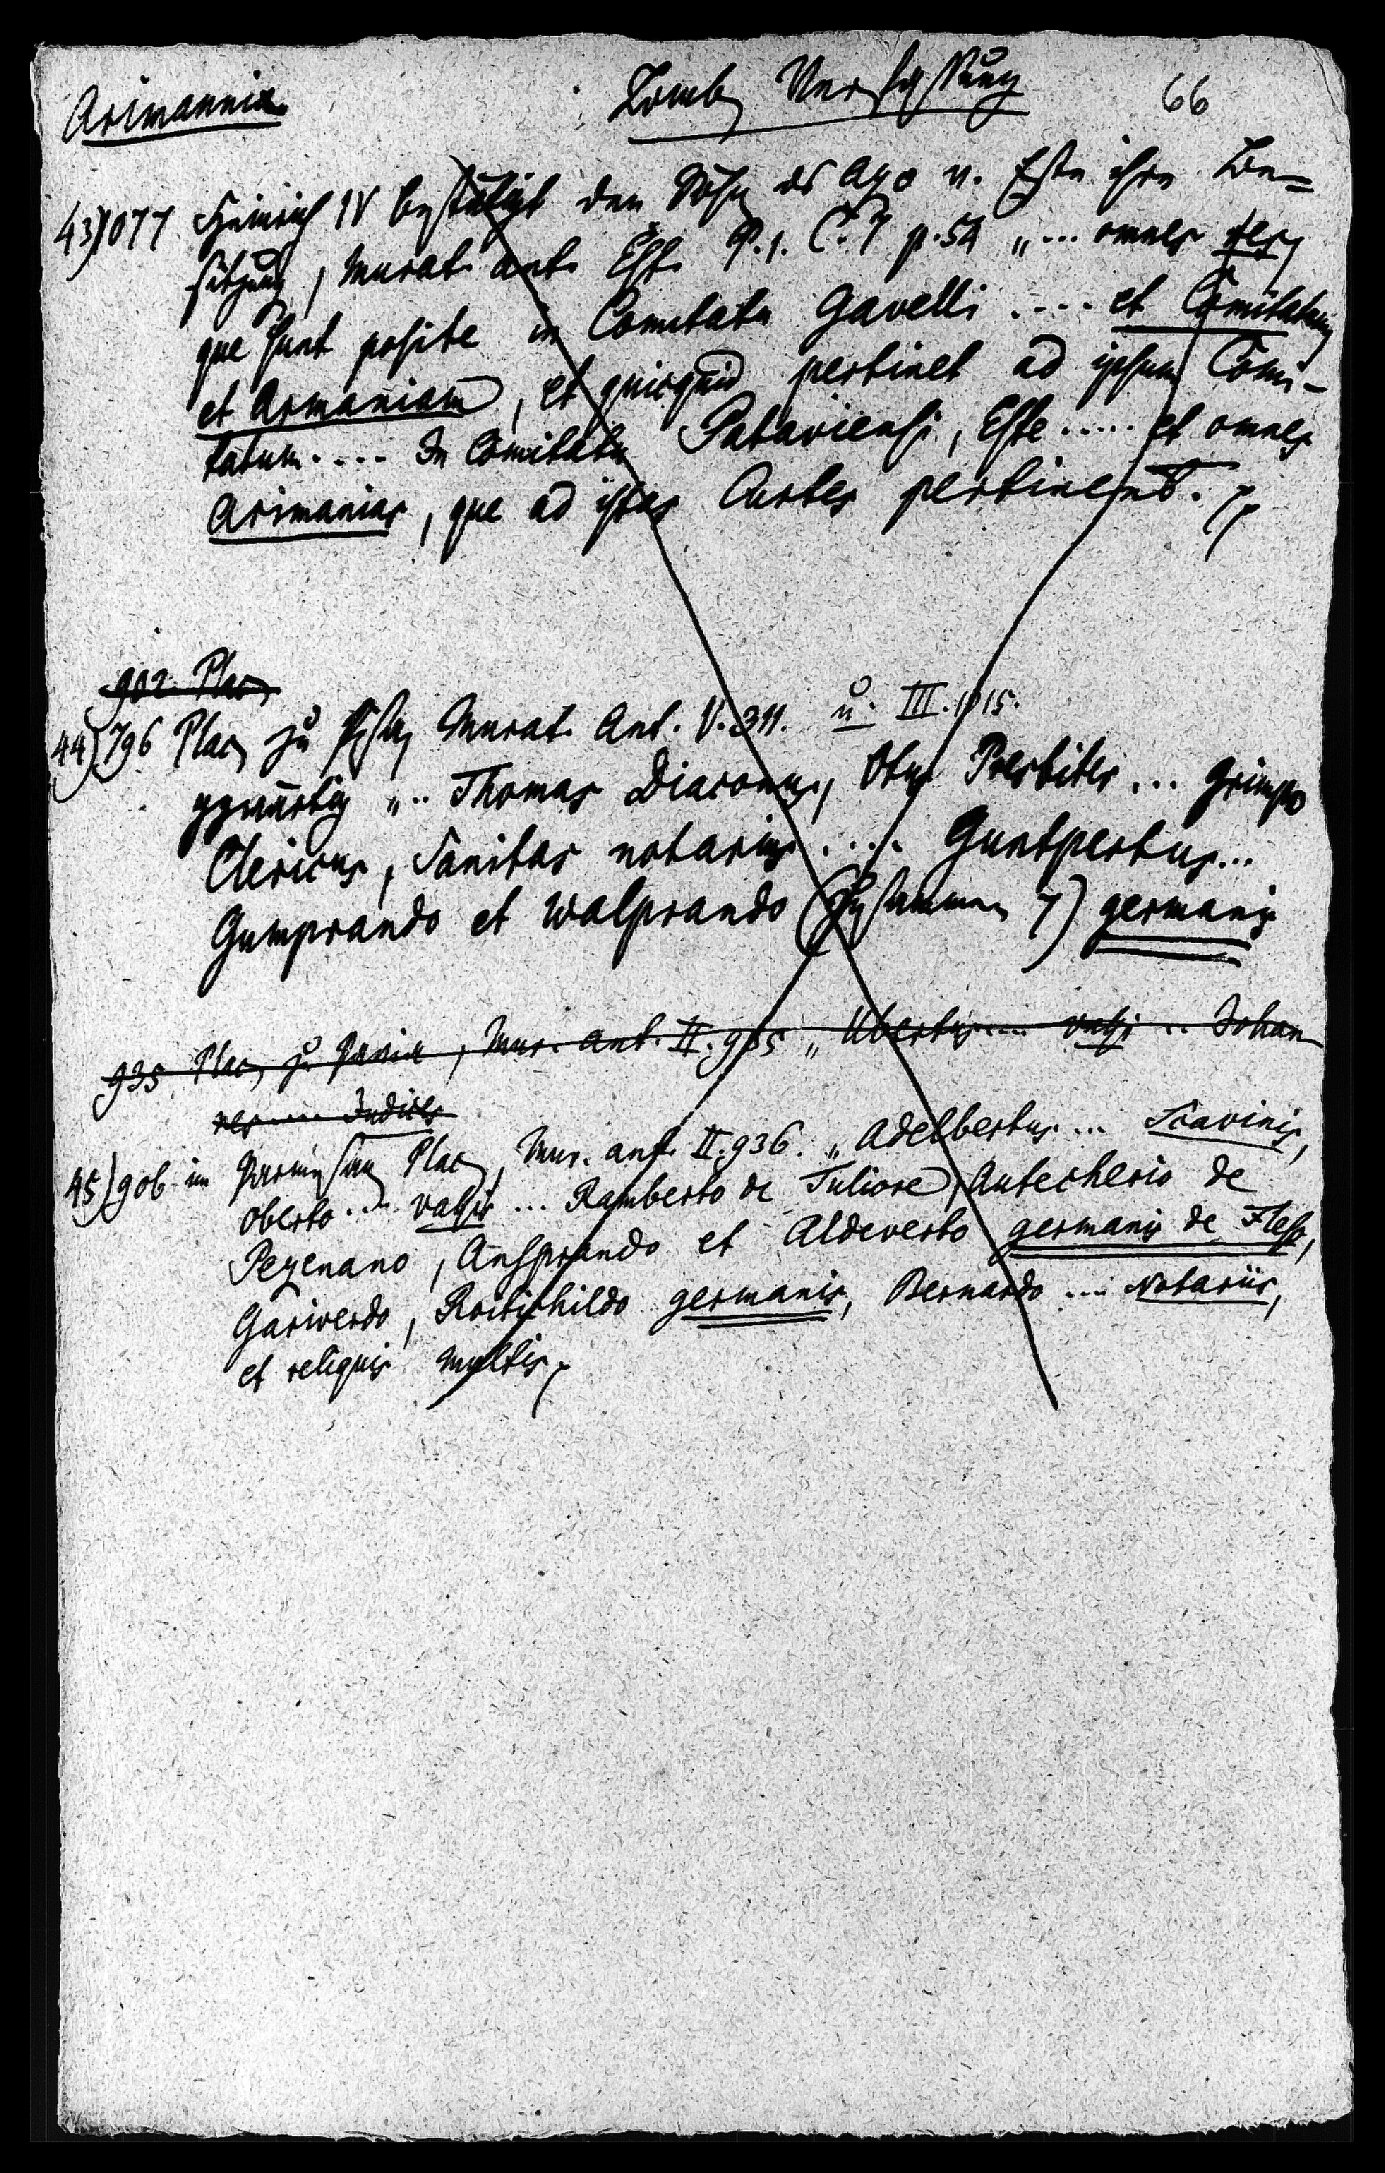 Arimannia. Lomb. Verfassung 66
43) 1077 Heinrich IV bestätigt den Söhn. ds Azo v. Este ihre Be=
sitzung, Murat. ant. Est. P. 1. C. 7 p. 54 „... omnes res
que sunt posite in Comitatu Gavelli .... et Comitatum
et Armaniam, et quicquid pertinet ad ipsum Comi-
tatum .... In Comitatu Pataviensi, Este ..... et omnes
Arimanias, que ad istas Curtes pertinent.
902. Plac.
44) 796 Plac. zu Murat. Ant. V. 311. u. III. 1015.
„.. Thomas Diaconus, Otus Presbiter ... Grimpo
Clericus, Sanitas notarius .... Guntpertus...
Gumprando et Walprando (Zusammen 7) germanis
935 Plac. zu Pavia, Mur. ant. II. 935 „ Ubertus .... vassi .. Johan
nes .... Judices
45) 906 im Plac., Mur. ant. II. 936. „Adelbertus ... Scavinis,
Oberto .... vassis ... Ramberto de Tuliore, Autecherio de
Pezenano, Ansprando et Aldeverto germanis de Flesso,
Gariverdo, Rotichildo germanis, Bernardo .... Notariis,
et reliquis multis.